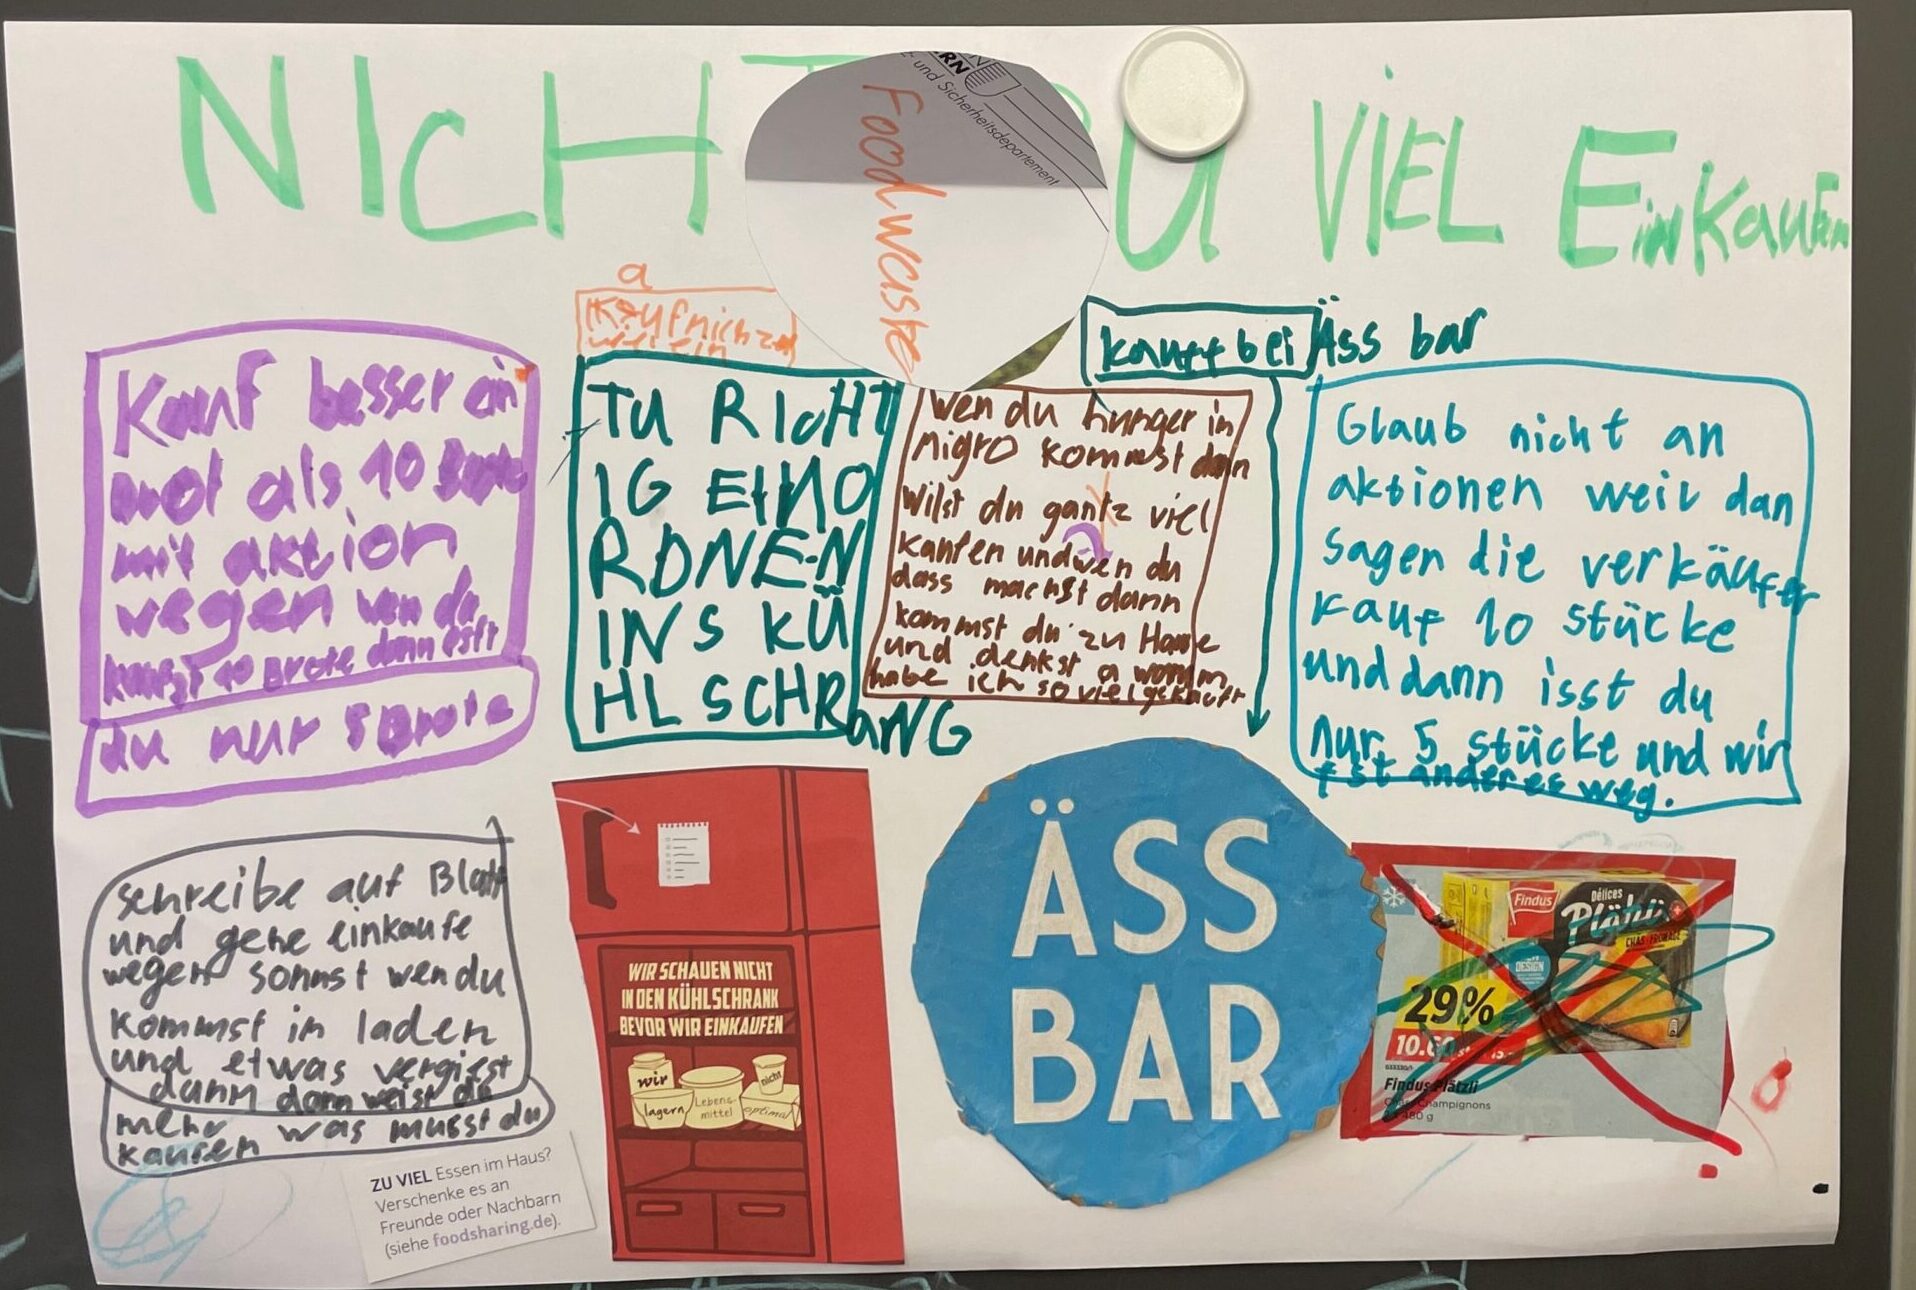 NICHT ZU VIEL EinKaufen
Foodwaste
RN
und Sicherheitsdepartement
a
Kauf nich zu
viel ein
kauft bei Äss bar
Kauf besser ein
brot als 10 Brote
mit aktion
wegen wen du
kaufst 10 Brote dann esst
du nur 5 Brote
TU RICHT
IG EINO
RDNEN
INS KÜ
HLSCHRanG
Wen du hunger in
migro kommst dann
wilst du gantz viel
kaufen und wen du
dass machst dann
kommst du zu Hause
und denkst a worum
habe ich so viel gekauft
Glaub nicht an
aktionen weil dan
sagen die verkäufer
Kauf 10 stücke
und dann isst du
nur 5 stücke und wir
fst anderes weg.
schreibe auf Blatt
und gehe einkaufe
wegen sonnst wen du
kommst in laden
und etwas vergisst
dann dann weist du
mehr was musst du
kaufen
ZU VIEL Essen im Haus?
Verschenke es an
Freunde oder Nachbarn
(siehe foodsharing.de).
WIR SCHAUEN NICHT
IN DEN KÜHLSCHRANK
BEVOR WIR EINKAUFEN
wir
lagern
Lebens-
mittel
nicht
optimal
ÄSS
BAR
Findus
Délices
Plätzli
CHAS-FROMAGE
DESIGN
29%
10.60
Findus Plätzli
Champignons
480 g